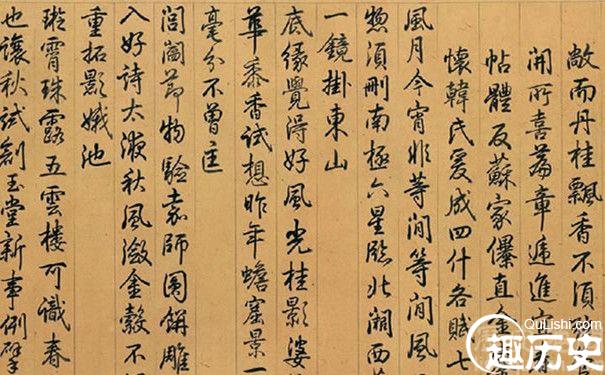 敞而丹桂飄香不須
開所喜篇章遞進
帖體反蘇家儤直金
懷韓氏爰成四什各賦七
風月今宵非等閒等閒風
惣須刪南極六星臨北湖西
一鏡掛東山
底緣覺得好風光桂影婆
華黍香試想昨年蟾窟景一
毫分不曾
閶闔節物驗嘉師圓餅雕
入好詩太液秋風瀲金縠不
重拓影娥池
璇霄珠露五雲樓可識春
也讓秋試創玉堂新事例擘
QuLishi.com
趣历史